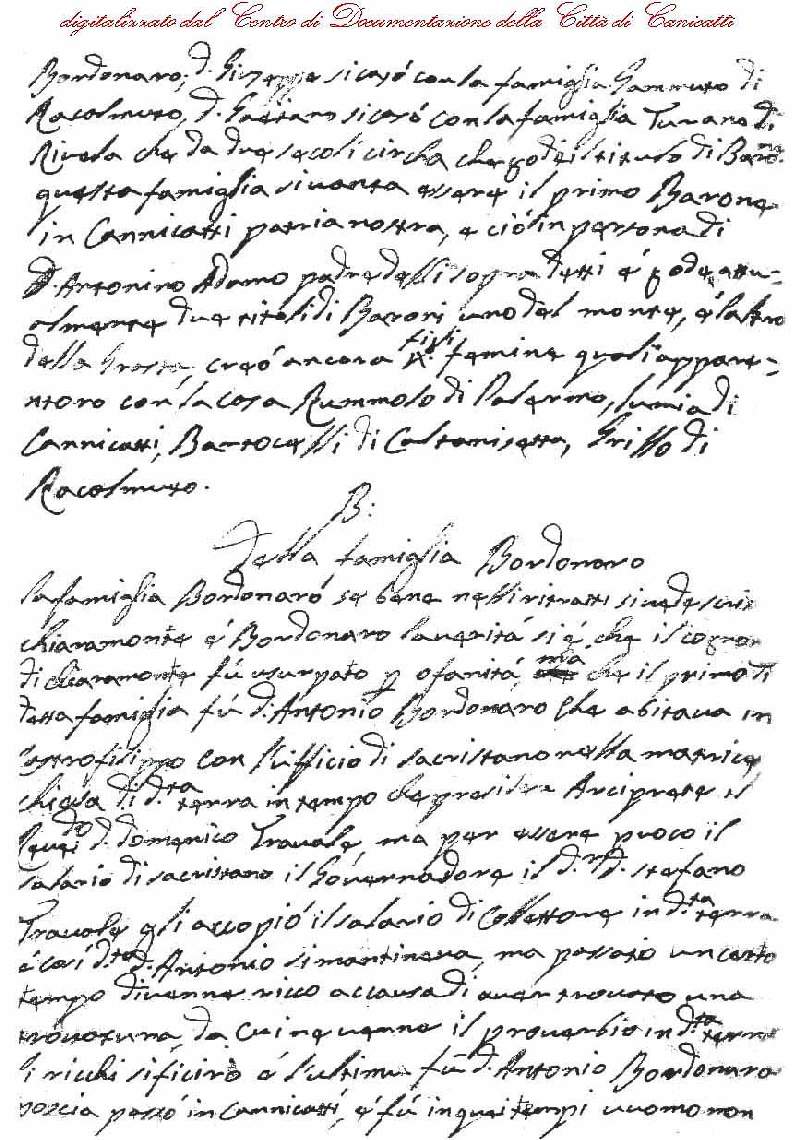 digitalizzato dal Centro di Documentazione della Città di Canicattì
Bordonaro; d. Giuseppe si casó con la famiglia Gammuto di
Racalmuto, d. Gaetano si casó con la famiglia Turano di
Rivela che da due secoli circha che gode il titulo di Bar.ne
questa famiglia si vanta essere il primo Barone
in Cannicatti patria nostra, e ció in persona di
D. Antonino Adamo padre delli sopra detti é gode attu-
almente due titoli di Baroni uno del monte, é laltro
della Grasta, creó ancora figli femine quali appare-
ntoro con la casa Rummolo di Palermo, lumia di
Cannicatti, Bartocelli di Caltanisetta, Grillo di
Racalmuto.
B:
Della famiglia Bordonaro
la famiglia Bordonaró se bene nelli ritratti si vede
chiaramonte é Bordonaro la veritá si é che il cognom
di chiaramonte fú usurpato p ofanitá, mia che il primo di
detta famiglia fú d. Antonio Bordonaro che abitava in
Castrofilippo con l'ufficio di sacristano nella matrice
chiesa di d.ta terra in tempo che Arciprete il
Reve.do d. domenico Travale, ma per essere puoco il
salario di sacristano il Governadore il d.r d. stefano
Travale gli accopió il salario di Collettore in d.ta terra
é cosí d.to d. Antonio si mantineva, ma passato un certo
tempo divenne ricco accausa di aver trovato una
trovatura, da cui ne venne il proverbio in d.ta terra
li ricchi si ficirò é l'ultimu fú d. Antonio Bordonaro
poscia passó in Cannicatti, é fú in quei tempi uuomo non